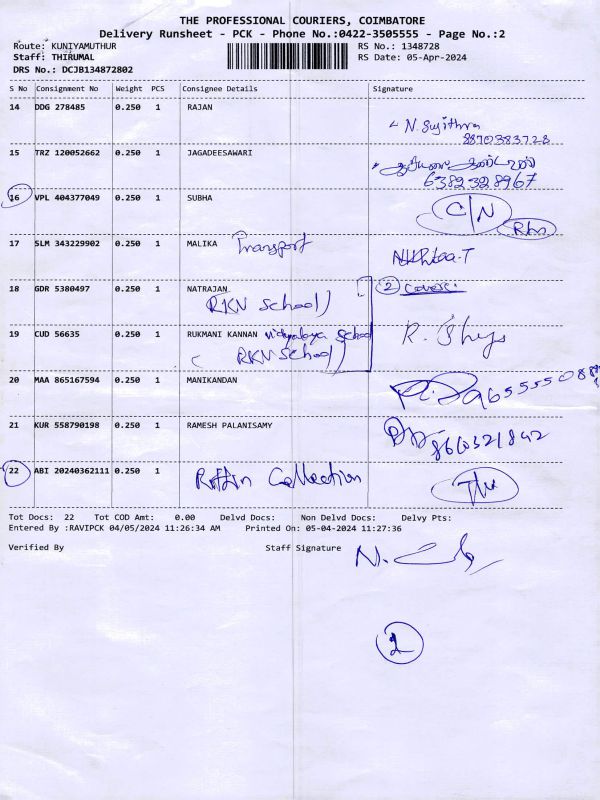 THE PROFESSIONAL COURIERS, COIMBATORE
Delivery Runsheet - PCK - Phone No.:0422-3505555 - Page No.:2
Route: KUNIYAMUTHUR
RS No.: 1348728
Staff: THIRUMAL
RS Date: 05-Apr-2024
DRS No.: DCJB134872802
S No Consignment No Weight PCS Consignee Details Signature
14 DDG 278485 0.250 1 RAJAN
N. Sujithra
8870383728
15 TRZ 120052662 0.250 1 JAGADEESAWARI
6382328967
16 VPL 404377049 0.250 1 SUBHA C/N
17 SLM 343229902 0.250 1 MALIKA Transport
18 GDR 5380497 0.250 1 NATRAJAN 2
RKV School)
19 CUD 56635 0.250 1 RUKMANI KANNAN vidyalaya School
(RKV School)
20 MAA 865167594 0.250 1 MANIKANDAN
21 KUR 558790198 0.250 1 RAMESH PALANISAMY
22 ABI 20240362111 0.250 1 Collection
Tot Docs: 22 Tot COD Amt: 0.00 Delvd Docs: Non Delvd Docs: Delvy Pts:
Entered By :RAVIPCK 04/05/2024 11:26:34 AM Printed On: 05-04-2024 11:27:36
Verified By Staff Signature